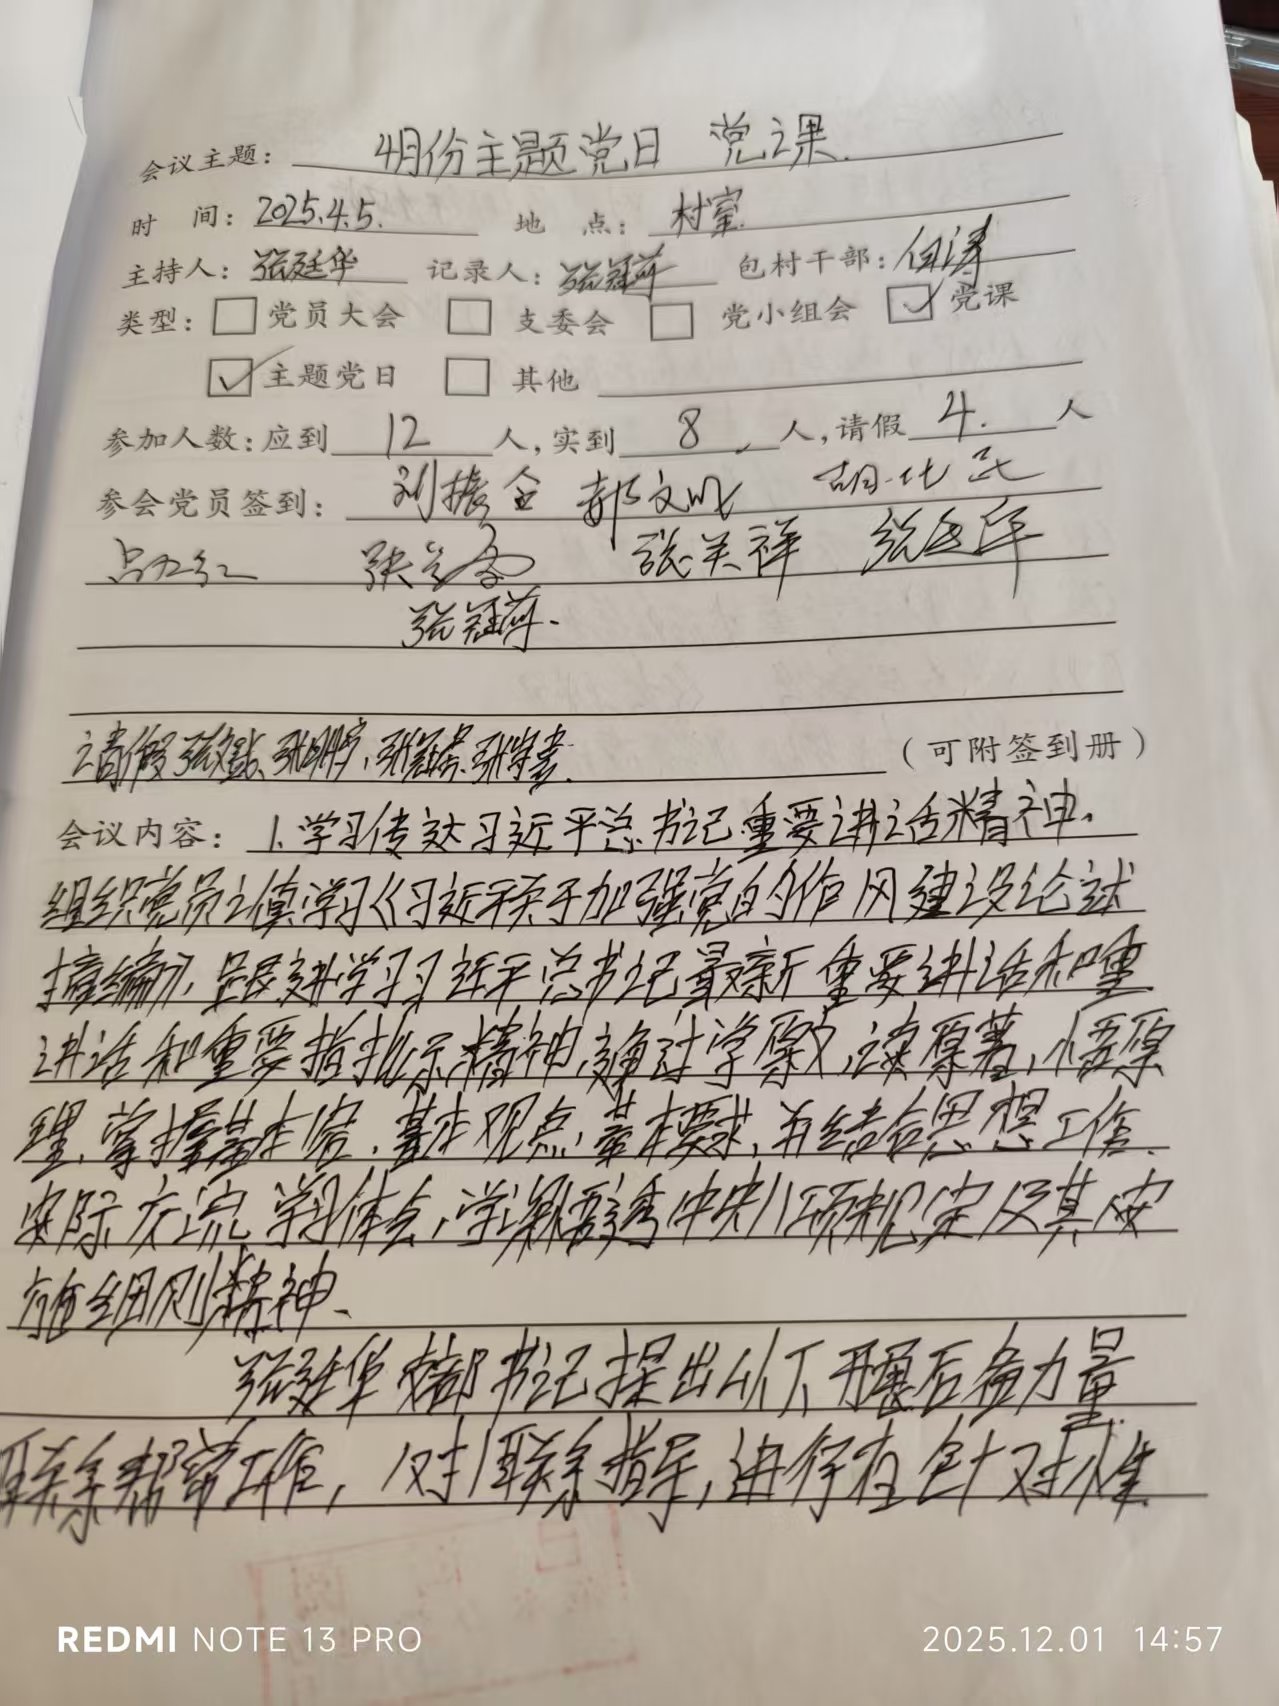 会议主题： 4月份主题党日 党课.
时 间：2025.4.5. 地 点：村室.
主持人：张廷华 记录人：张冠萍 包村干部：
类型：□党员大会 □支委会 □党小组会 ☑党课
☑主题党日 □其他
参加人数：应到 12 人，实到 8 人，请假 4. 人
参会党员签到：刘振全 郝文明
张美祥
张冠萍.
请假
（可附签到册）
会议内容：1.学习传达习近平总书记重要讲话精神.
组织党员认真学习《习近平关于加强党的作风建设论述
摘编》, 跟进学习习近平总书记最新重要讲话和重
讲话和重要指批示精神, 通过学原文, 读原著, 悟原
理, 掌握基本内容, 基本观点, 基本要求, 并结合思想工作
实际交流学习体会, 学深悟透中央八项规定及其实
施细则精神、
张廷华支部书记提出以下开展后备力量
联系帮带工作, 1对1联系指导, 进行有针对性
REDMI NOTE 13 PRO
2025.12.01 14:57